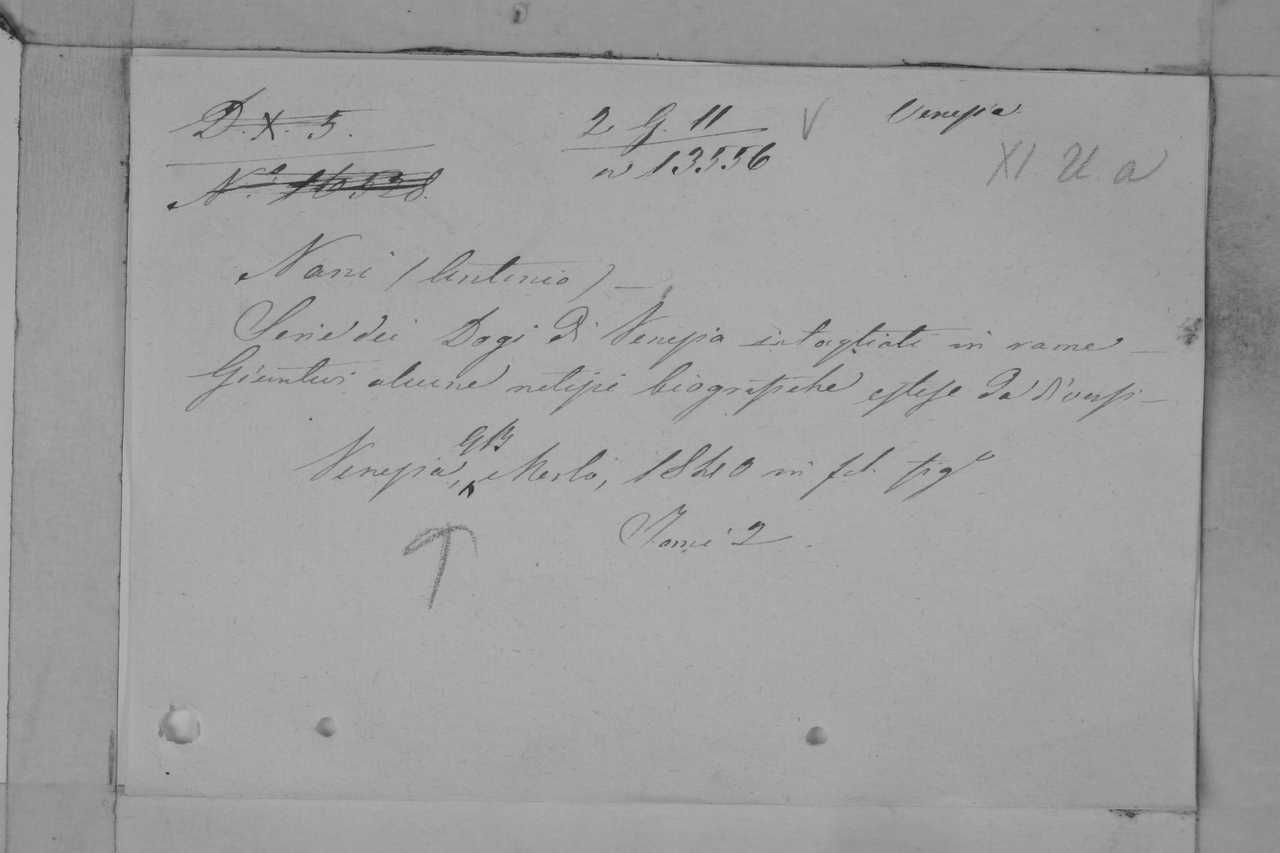 D. X. 5.
2 G. 11
V
Venezia
N.º 16528.
n 13556
XI U. a
Nani (Antonio) —
Serie dei Dogi di Venezia intagliati in rame —
Giuntevi alcune notizie biografiche estese da diversi —
G B
Venezia, Merlo, 1840 in fol. fig.º
Tomi 2.